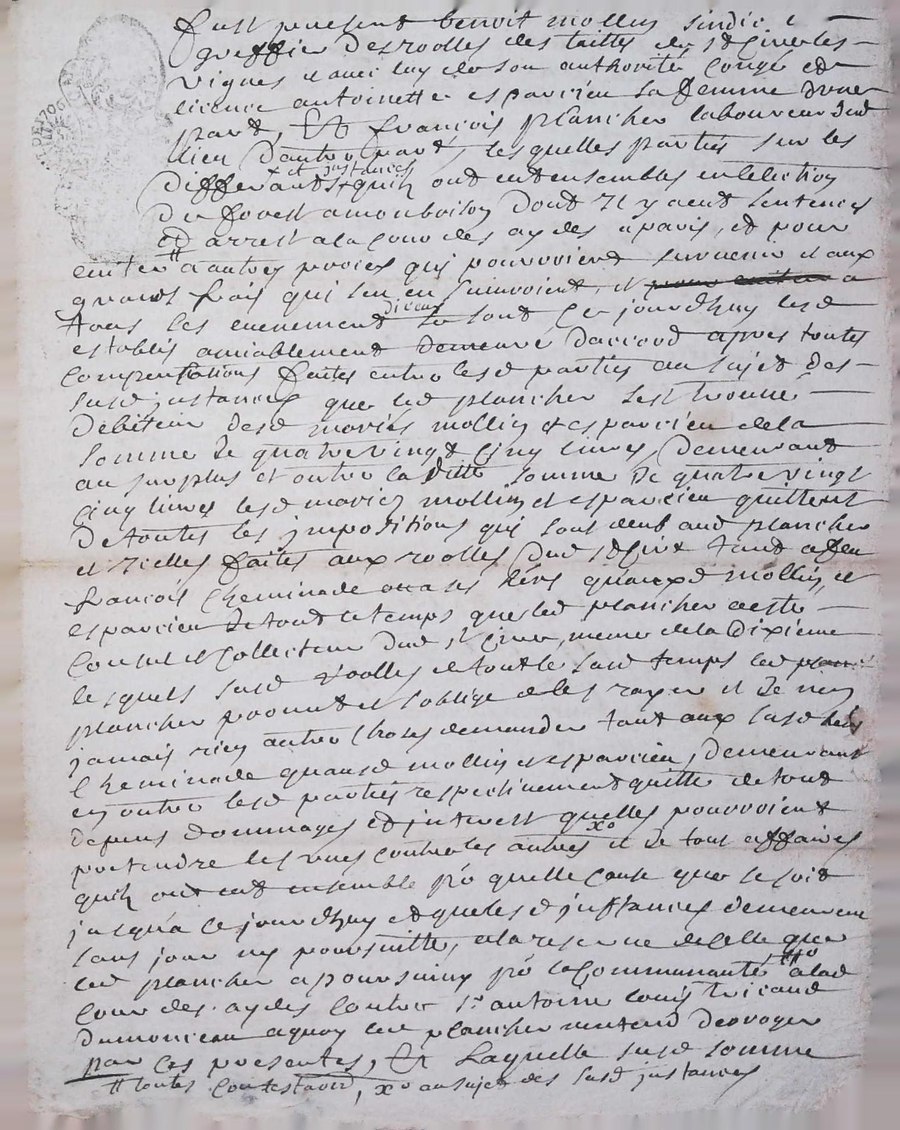 Fust present benoit mollin sindic &
greffier des roolles des tailles de st Cirvetes
vignes et avec luy de son authorité Congé et
licence antoinette esparcieu sa femme d'une
part, Et françois plancher laboureur dud
lieu d'autre part, lesquelles parties sur les
x et jnstances
differants x quilz ont eut ensembles en lelection
de forest a monbrison dont Il y a eut sentences
et arrest a la Cour des aydes a paris, et pour
eviter # a autres proces qui pourroient survenir et aux
grands frais qui sen en suivroient, et pour eviter a
tous les evenement diceux se sont Ce jourdhuy lesd
establis amiablement demeuré daccord apres toutes
Compensations faites entre lesd parties au sujet des
susd jnstances que led plancher sest trouvé
debiteur desd mariés mollin et esparcieu de la
somme de quatre vingt Cinq livres, demeurant
au surplus et outre laditte somme de quatre vingt
cinq livres lesd mariez mollin et esparcieu quittent
de toutes les jmpositions qui sont deub aud plancher
et Icelles faites aux roolles dud st Cir tant a feu
françois Cheminade ou a ses hers quauxd mollin et
esparcieu de tout le temps que led plancher a esté
Consul et Collecteur dud st Cir, meme de la dixieme
lesquels susd roolles de tout le susd temps led
plancher promet et soblige de les rayer et de ne
jamais rien autre Choses demander tant aux susd hers
Cheminade quausd mollin et esparcieu, demeurant
en outre lesd parties respectivement quitte de tout
depens dommages et jnterest quelles pourroient
pretendre les unes contre les autres xo et de tout affaires
quilz ont eut ensemble po quelle Cause que se soit
jusqua Ce jourdhuy et que lesd jnstances demeurent
sans jour ny poursuitte, a la reserve de Celle que
led plancher a poursuivy po la Communauté a lad
Cour des aydes Contre sr antoine louis tricaud
dumonceau a quoy led plancher nentend deroger
par Ces presentes, Et Laquelle susd somme
# toutes Contestaons, xo au sujet des susd jnstances